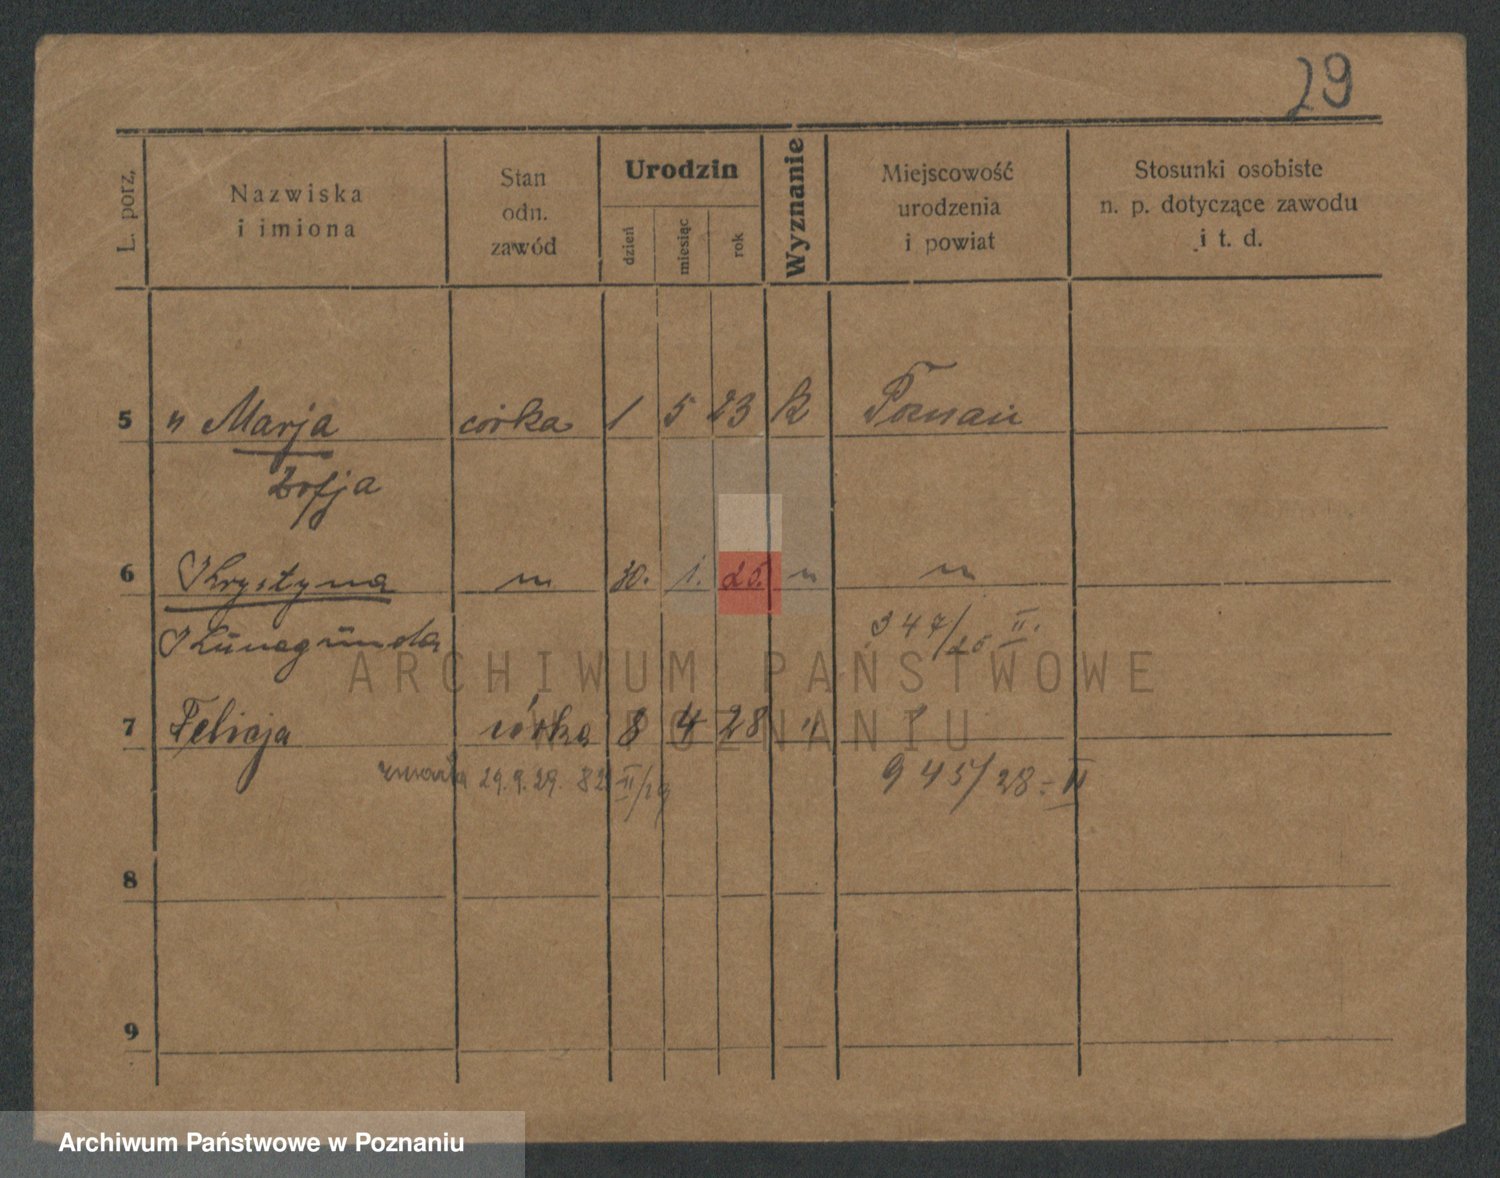 29
L. porz.
Nazwiska
i imiona
Stan
odn.
zawód
Urodzin
dzień
miesiąc
rok
Wyznanie
Miejscowość
urodzenia
i powiat
Stosunki osobiste
n. p. dotyczące zawodu
i t. d.
5 " Marja córka 1 5 23 k Poznań
Zofja
6 Krystyna " 30. 1. 25. " "
Kunegunda 347/25 II.
7 Felicja córka 8 4 28 " "
zmarła 29.9.29. II/29 945/28 - II
8
9
ARCHIWUM PAŃSTWOWE
W POZNANIU
Archiwum Państwowe w Poznaniu